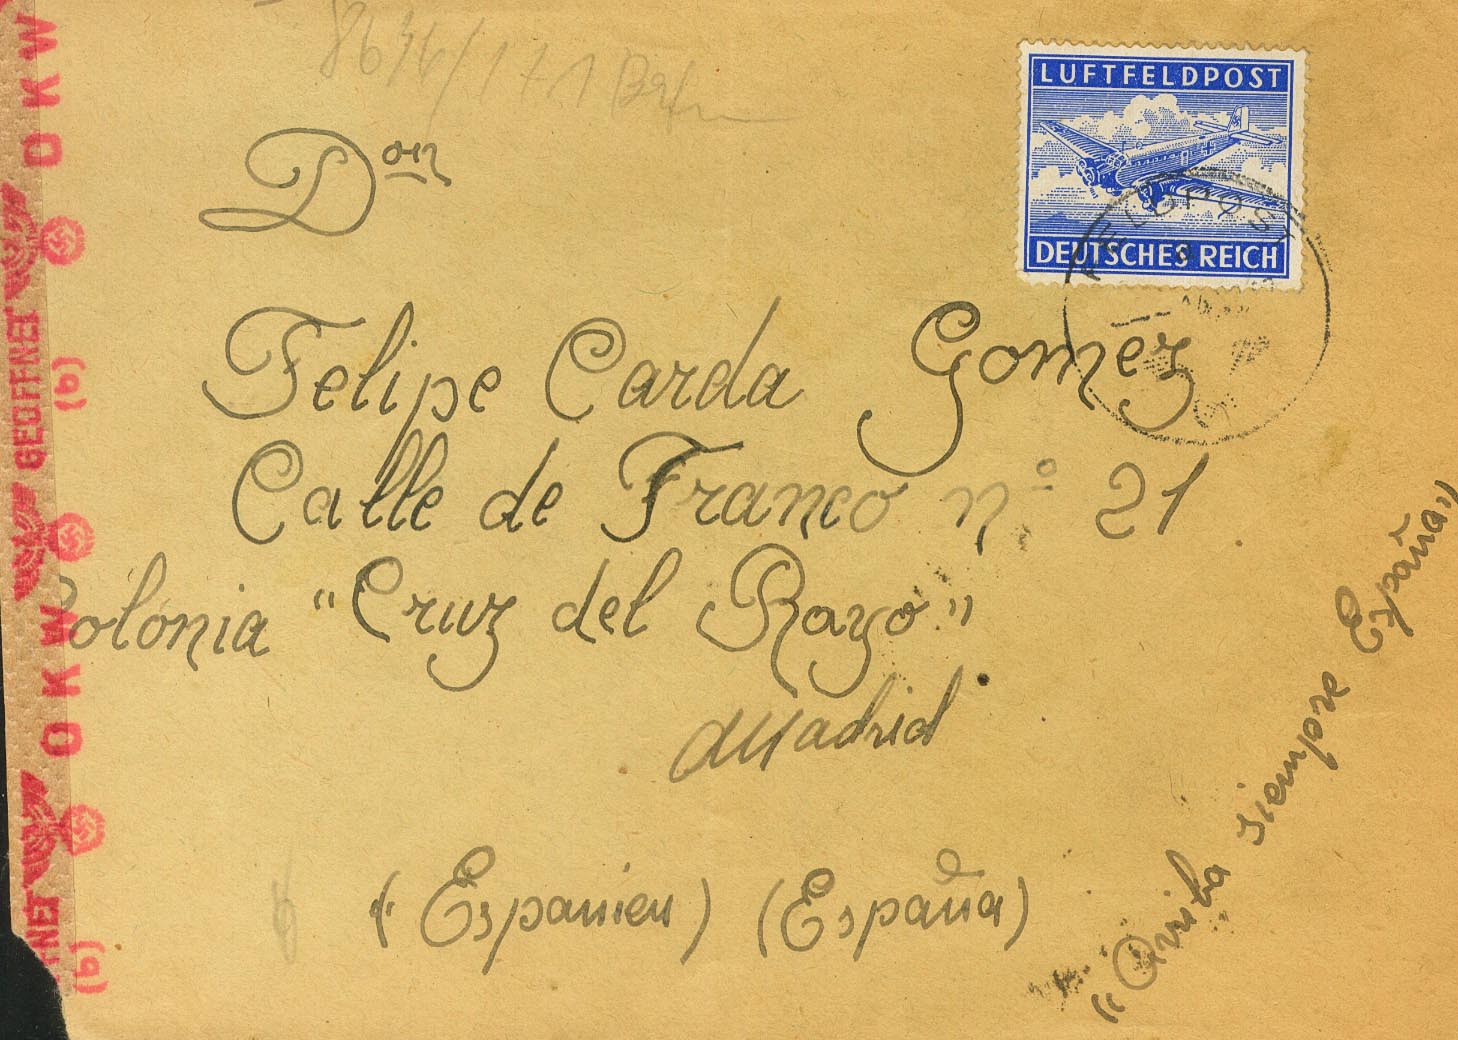 LUFTFELDPOST
DEUTSCHES REICH
FELDPOST
Don
Felipe Carda Gomez
Calle de Franco nº 21
Colonia "Cruz del Rayo"
Madrid
(Espanien) (España)
"Arriba siempre España"
OKW
GEÖFFNET
(b)
OKW
FFNET
(b)